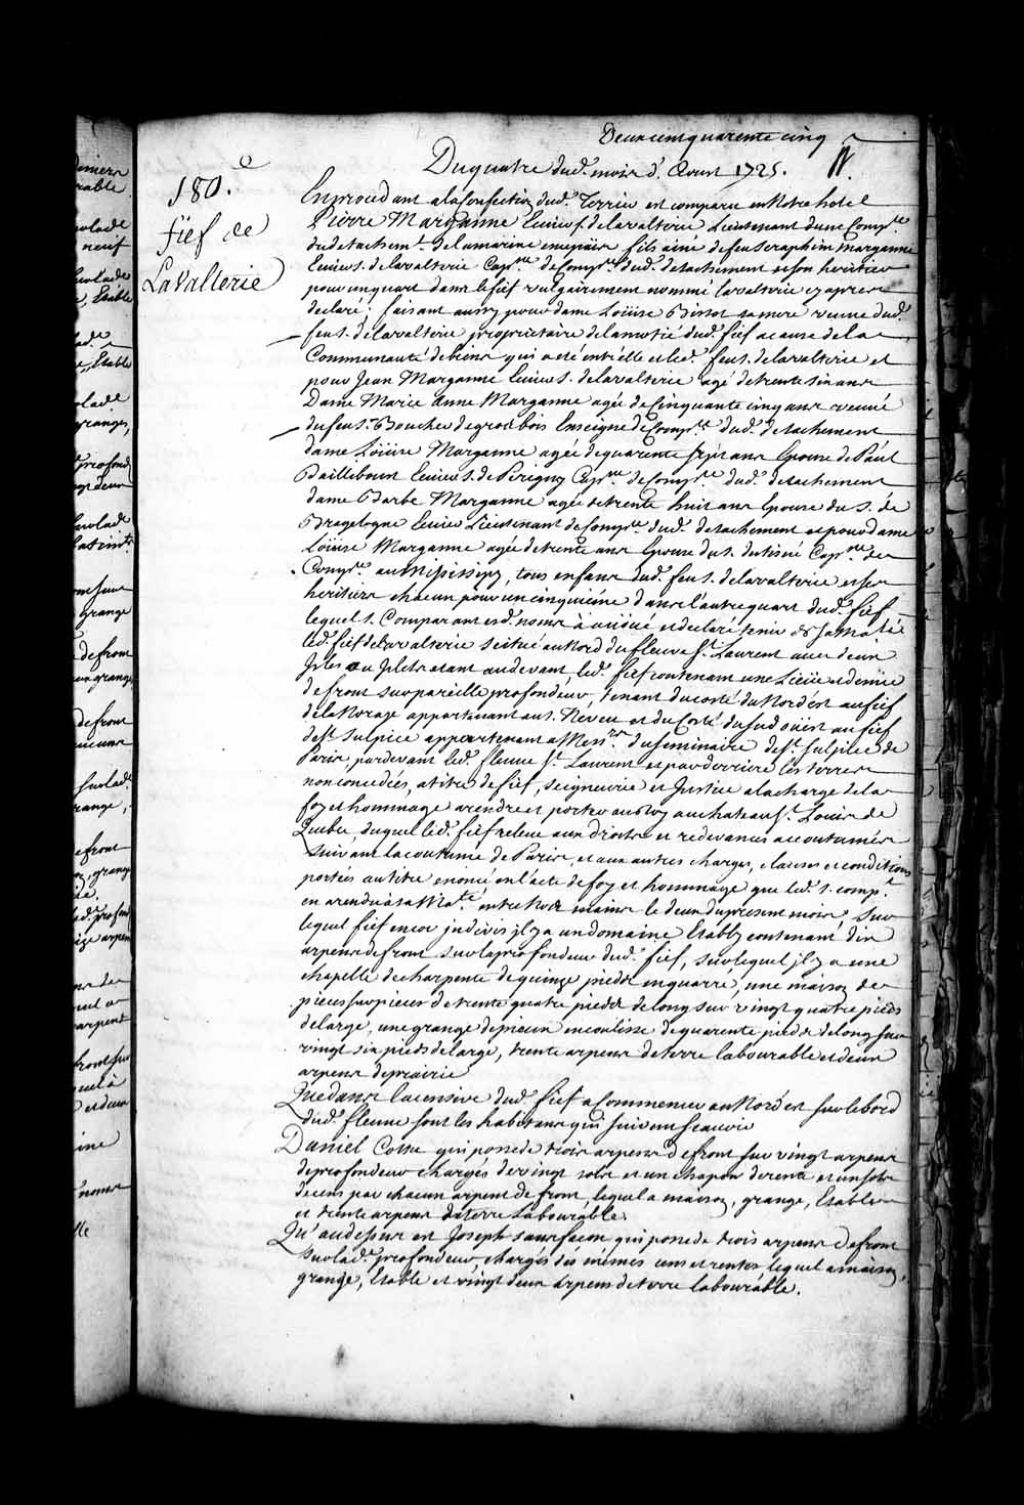 Deux cens quarente cinq
Du quatre dud. mois d'Aoust 1725.
180.e
fief de
LaVallerie
En procedant a la Confection dud. Terrier est comparu en Notre hotel
Pierre Marganne Ecuier S. delavalterie Lieutenant dune Comp.ie
du detachem.t delamarine en ce païs fils ainé de feu Seraphin Marganne
Ecuier S. delavalterie Cap.ne de Comp.ie dud. detachement et son heritier
pour un quart dans le fief vulgairement nommé lavalterie cy apres
declaré; faisant aussy pour dame Loüise Bissot sa mere veuve dud.
feu S. delavalterie proprietaire de la motié dud. fief a cause de la
Communauté de biens qui a eté entre elle et led. feu S. delavalterie et
pour Jean Marganne Ecuier S. delavalterie agé de trente six ans
Dame Marie Anne Marganne agée de Cinquante cinq ans veuve
du feu S. Boucher de grosbois Enseigne de Comp.ie dud. detachement
dame Loüise Marganne agée de quarente sept ans Epouse de Paul
Daillebout Ecuier S. de Perigny Cap.ne de Comp.ie dud. detachement
dame Barbe Marganne agée de trente huit ans Epouse du S. de
Bragelogne Ecuier Lieutenant de Comp.ie dud. detachement et pour dame
Loüise Marganne agée de trente ans Epouse du S. du tisné Cap.ne de
Comp.ie au Mississipy, tous enfans dud. feu S. delavalterie et ses
heritiers chacun pour un cinquiéme dans l'autre quart dud. fief
lequel S. Comparant esd. noms à avoüé et declaré tenir de Sa Ma.té
led. fief de Lavalterie scitué au Nord du fleuve S.t Laurent avec deux
Isles ou Islets etant au devant, led. fief contenant une Lieüe et demie
de front sur pareille profondeur, tenant du costé du Nord est au fief
de la Noraye appartenant au S. Neveu et du Costé du Sud oüest au fief
de S.t Sulpice appartenant a Mess.rs du Seminaire de S.t Sulpice de
Paris, par devant led. fleuve S.t Laurent et par derriere les terres
non concedées, a titre de fief, seigneurie et Justice a la charge de la
foy et hommage a rendre et porter au Roy au chateau S.t Louis de
Quebec duquel led. fief releve aux droits et redevances accoutumés
suivant la coutume de Paris, et aux autres charges, clauses et conditions
portées au titre enoncé en l'acte de foy et hommage que led. S. comp.t
en a rendu à sa Ma.té entre nos mains le deux du present mois, Sur
lequel fief encor indivis il y a un domaine Etably contenant dix
arpens de front sur la profondeur dud. fief, sur lequel il y a une
chapelle de charpente de quinze pieds en quarré, une maison de
pieces sur pieces de trente quatre pieds de long sur vingt quatre pieds
de large, une grange de pieux en coulisse de quarente pieds de long sur
vingt six pieds de large, trente arpens de terre labourable et deux
arpens de prairie
Que dans la censive dud. fief a Commencer au Nord est sur le bord
dud. fleuve sont les habitans qui suivent scavoir
Daniel Cottu qui possede trois arpens de front sur vingt arpens
de profondeur chargés de vingt sols et un chapon de rente et un sols
de cens par chacun arpent de front, lequel a maison, grange, Etable
et trente arpens de terre Labourable.
Qu'au dessus est Joseph sansfacon qui possede trois arpens de front
sur lad. profondeur chargés des mêmes cens et rentes lequel a maison,
grange, Etable et vingt deux arpens de terre labourable.